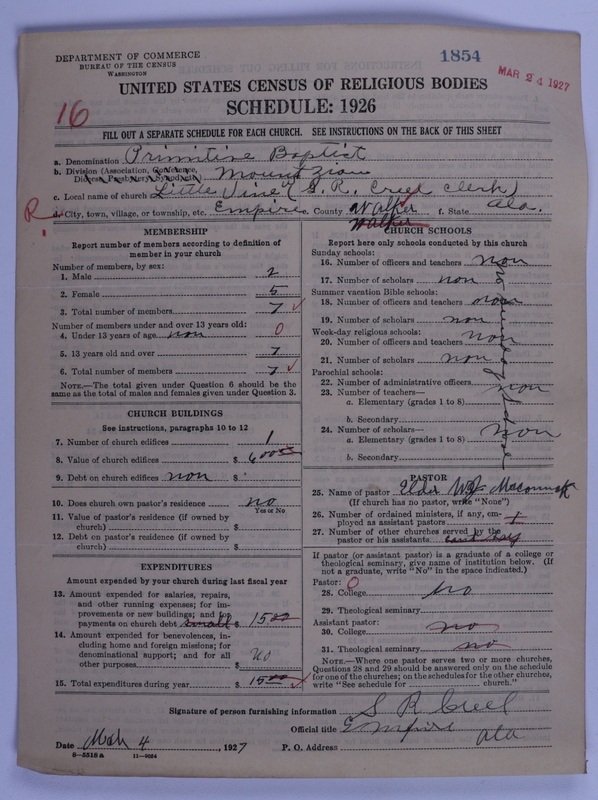 DEPARTMENT OF COMMERCE
BUREAU OF THE CENSUS
WASHINGTON
1854
MAR 24 1927
UNITED STATES CENSUS OF RELIGIOUS BODIES
SCHEDULE: 1926
16
FILL OUT A SEPARATE SCHEDULE FOR EACH CHURCH. SEE INSTRUCTIONS ON THE BACK OF THIS SHEET
a. Denomination Primitive Baptist
b. Division (Association, Conference, Diocese, Presbytery, Synod, etc.) Mount Zion
c. Local name of church Little Vine (S. R. Creel Clerk)
R. d. City, town, village, or township, etc. Empire e. County Walker f. State Ala.
Walker
MEMBERSHIP
Report number of members according to definition of
member in your church
Number of members, by sex:
1. Male 2
2. Female 5
3. Total number of members 7
Number of members under and over 13 years old:
4. Under 13 years of age non 0
5. 13 years old and over 7
6. Total number of members 7
NOTE.—The total given under Question 6 should be the
same as the total of males and females given under Question 3.
CHURCH BUILDINGS
See instructions, paragraphs 10 to 12
7. Number of church edifices 1
8. Value of church edifices $ 600
9. Debt on church edifices non $
10. Does church own pastor's residence no
Yes or No
11. Value of pastor's residence (if owned by
church) $
12. Debt on pastor's residence (if owned by
church) $
EXPENDITURES
Amount expended by your church during last fiscal year
13. Amount expended for salaries, repairs,
and other running expenses; for im-
provements or new buildings; and for
payments on church debt $ 15 00
14. Amount expended for benevolences, in-
cluding home and foreign missions; for
denominational support; and for all
other purposes $ no
15. Total expenditures during year $ 15 00
CHURCH SCHOOLS
Report here only schools conducted by this church
Sunday schools:
16. Number of officers and teachers non
17. Number of scholars non
Summer vacation Bible schools:
18. Number of officers and teachers non
19. Number of scholars non
Week-day religious schools:
20. Number of officers and teachers non
21. Number of scholars non
Parochial schools:
22. Number of administrative officers
23. Number of teachers— non
a. Elementary (grades 1 to 8)
b. Secondary
24. Number of scholars— non
a. Elementary (grades 1 to 8)
b. Secondary
PASTOR
25. Name of pastor Elder
(If church has no pastor, write "None")
26. Number of ordained ministers, if any, em-
ployed as assistant pastors 1
27. Number of other churches served by the
pastor or his assistants
If pastor (or assistant pastor) is a graduate of a college or
theological seminary, give name of institution below. (If
not a graduate, write "No" in the space indicated.)
Pastor: 0
28. College no
29. Theological seminary
Assistant pastor:
30. College no
31. Theological seminary no
NOTE.—Where one pastor serves two or more churches,
Questions 28 and 29 should be answered only on the schedule
for one of the churches; on the schedules for the other churches,
write "See schedule for church."
Signature of person furnishing information S R Creel
Official title Empire
Date Mch 4, 1927 P. O. Address Ala
8—5518a 11—9024